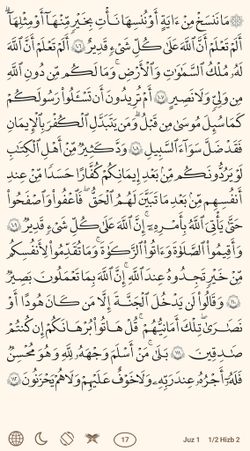 ۞ مَا نَنسَخْ مِنْ ءَايَةٍ أَوْ نُنسِهَا نَأْتِ بِخَيْرٍ مِّنْهَآ أَوْ مِثْلِهَآ ۗ
أَلَمْ تَعْلَمْ أَنَّ ٱللَّهَ عَلَىٰ كُلِّ شَىْءٍ قَدِيرٌ ١٠٦ أَلَمْ تَعْلَمْ أَنَّ ٱللَّهَ
لَهُۥ مُلْكُ ٱلسَّمَـٰوَٰتِ وَٱلْأَرْضِ ۗ وَمَا لَكُم مِّن دُونِ ٱللَّهِ
مِن وَلِىٍّ وَلَا نَصِيرٍ ١٠٧ أَمْ تُرِيدُونَ أَن تَسْـَٔلُوا۟ رَسُولَكُمْ
كَمَا سُئِلَ مُوسَىٰ مِن قَبْلُ ۗ وَمَن يَتَبَدَّلِ ٱلْكُفْرَ بِٱلْإِيمَـٰنِ
فَقَدْ ضَلَّ سَوَآءَ ٱلسَّبِيلِ ١٠٨ وَدَّ كَثِيرٌ مِّنْ أَهْلِ ٱلْكِتَـٰبِ
لَوْ يَرُدُّونَكُم مِّنۢ بَعْدِ إِيمَـٰنِكُمْ كُفَّارًا حَسَدًا مِّنْ عِندِ
أَنفُسِهِم مِّنۢ بَعْدِ مَا تَبَيَّنَ لَهُمُ ٱلْحَقُّ ۖ فَٱعْفُوا۟ وَٱصْفَحُوا۟
حَتَّىٰ يَأْتِىَ ٱللَّهُ بِأَمْرِهِۦٓ ۗ إِنَّ ٱللَّهَ عَلَىٰ كُلِّ شَىْءٍ قَدِيرٌ ١٠٩
وَأَقِيمُوا۟ ٱلصَّلَوٰةَ وَءَاتُوا۟ ٱلزَّكَوٰةَ ۚ وَمَا تُقَدِّمُوا۟ لِأَنفُسِكُم
مِّنْ خَيْرٍ تَجِدُوهُ عِندَ ٱللَّهِ ۗ إِنَّ ٱللَّهَ بِمَا تَعْمَلُونَ بَصِيرٌ
١١٠ وَقَالُوا۟ لَن يَدْخُلَ ٱلْجَنَّةَ إِلَّا مَن كَانَ هُودًا أَوْ
نَصَـٰرَىٰ ۗ تِلْكَ أَمَانِيُّهُمْ ۗ قُلْ هَاتُوا۟ بُرْهَـٰنَكُمْ إِن كُنتُمْ
صَـٰدِقِينَ ١١١ بَلَىٰ مَنْ أَسْلَمَ وَجْهَهُۥ لِلَّهِ وَهُوَ مُحْسِنٌ
فَلَهُۥٓ أَجْرُهُۥ عِندَ رَبِّهِۦ وَلَا خَوْفٌ عَلَيْهِمْ وَلَا هُمْ يَحْزَنُونَ ١١٢
17 Juz 1 1/2 Hizb 2